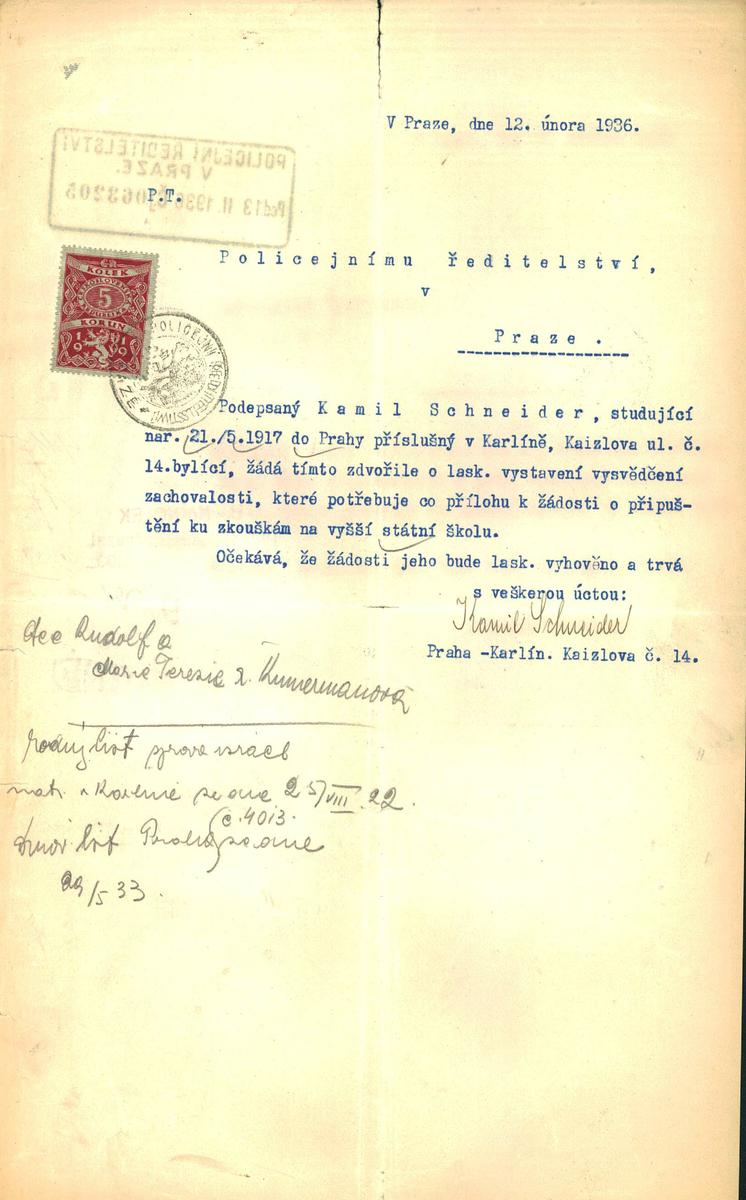 V Praze, dne 12. února 1936.
POLICEJNÍ ŘEDITELSTVÍ
V PRAZE.
Pod 13 II. 1936 Čj 063205
P.T.
Policejnímu ředitelství,
v
Praze.
ČR
KOLEK
ČESKOSLOVENSKÁ
5
REPUBLIKA
KORUN
1919
POLICEJNÍ ŘEDITELSTVÍ
Podepsaný Kamil Schneider, studující
nar. 21./5.1917 do Prahy příslušný v Karlíně, Kaizlova ul. č.
14.bylící, žádá tímto zdvořile o lask. vystavení vysvědčení
zachovalosti, které potřebuje co přílohu k žádosti o připuš-
tění ku zkouškám na vyšší státní školu.
Očekává, že žádosti jeho bude lask. vyhověno a trvá
s veškerou úctou:
Kamil Schneider
Praha -Karlín. Kaizlova č. 14.
Otec Rudolf a
Marie Terezie r. Kumermanová
rodný list
matr. v Karlíně ze dne 25/VIII 22.
č. 4013.
list Praha ze dne
/5 33.